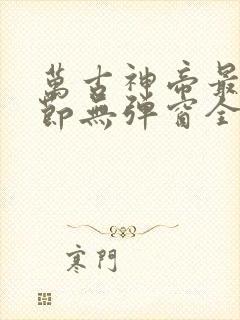 萬古神帝最
節無彈窗全
寒門